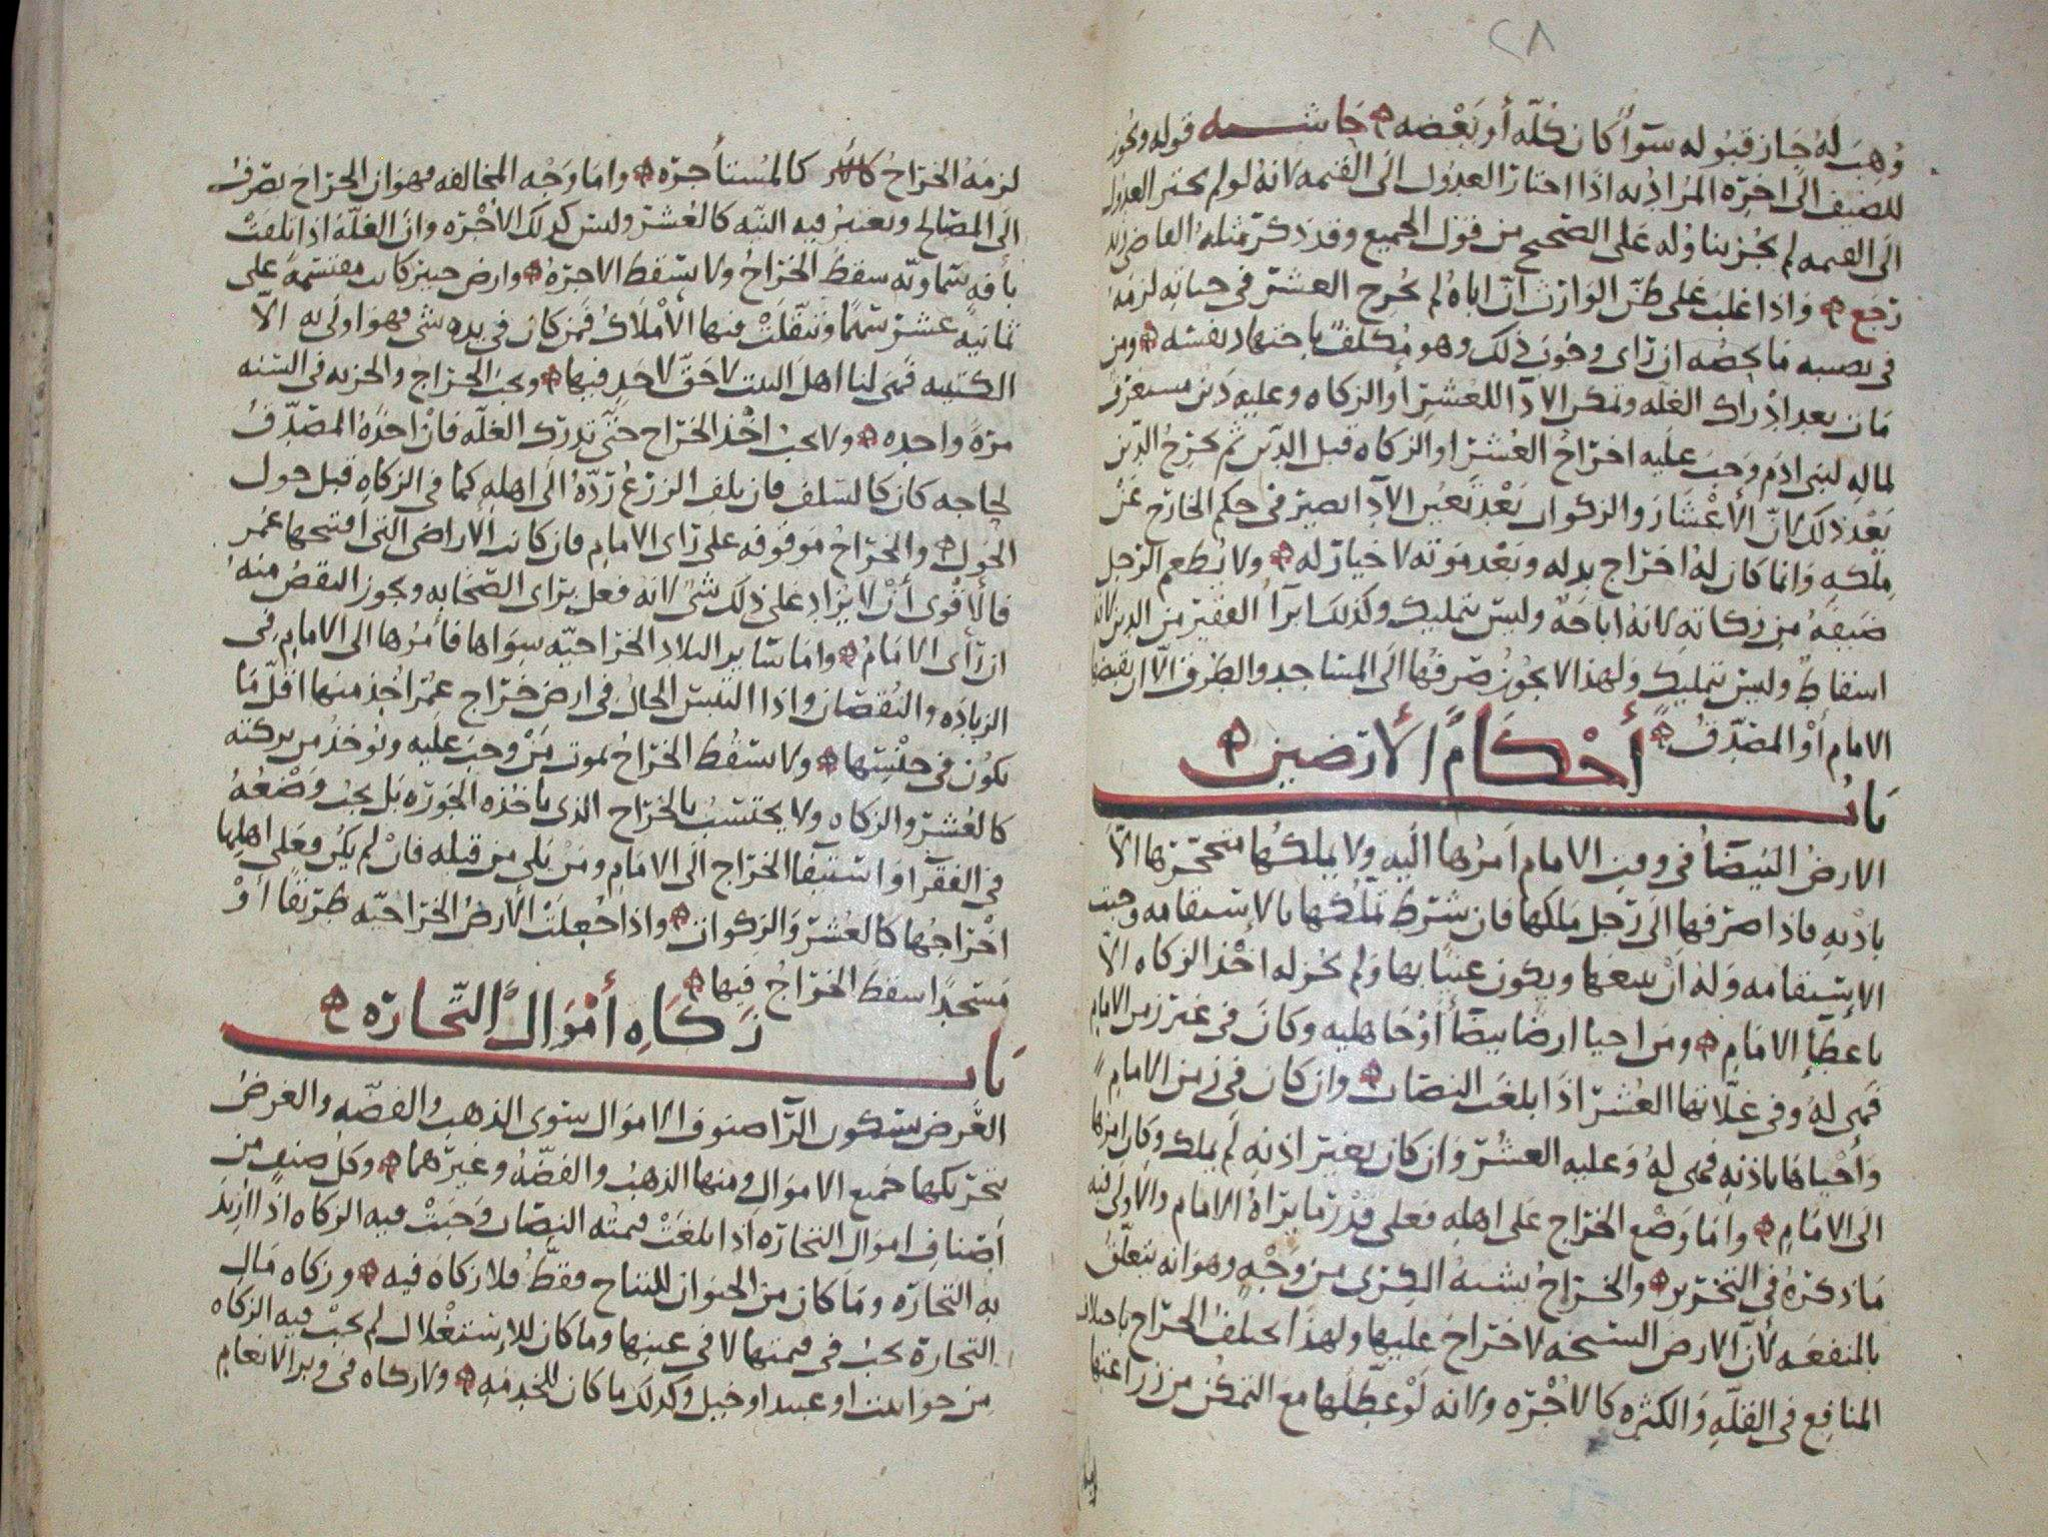 ٢٨
وُهِبَ لَهُ جَاز قبُوله سَوآ كان كله أو بَعْضه حَاشيه قوله ويجوز
للمضيف الى اخره المراد به اذا اختار العدول الى القيمه لانه لو لم يختر العدول
الى القيمه لم يجز تناوله على الصحيح من قول الجميع وقد ذكر مثله القاضي زيد
رجع واذا غلب على ظن الوارث ان اباه لم يخرج العشر في حياته لزمه
في نصيبه ما يخصه ان راى وجوب ذلك وهو مكلف باجتهاد نفسه ومن
مات بعد ادراك الغله وتمكن الادآ للعشر أو الزكاه وعليه دين مستغرق
لماله لبني ادم وجب عليه اخراج العشر او الزكاه قبل الدين ثم يخرج الدين
بعد ذلك لان الأعشار والزكوات بعد تعين الادآ تصير في حكم الخارج عن
ملكه وانما كان له اخراج بدله وبعد موته لا خيار له ولا يطعم الرجل
ضيفه من زكاته لانه اباحه وليس بتمليك وكذلك ابرآ الفقير من الدين لانه
اسقاط وليس بتمليك ولهذا لا يجوز صرفها الى المساجد والطرق الا ان يقبضها
الامام أو المصدق
باب أحكام الأرضين
الارض البيضآ في وقت الامام امرها اليه ولا يملكها متحجرها الا
باذنه فاذا صرفها الى رجل ملكها فان شرط تملكها بالاستقامه وجبت
الاستقامه وله ان يبيعها ويكون عينا بها ولم يجز له اخذ الزكاه الا
باعطآ الامام ومن احيا ارضا بيضآ او جاهليه وكان في غير زمن الامام
فهي له وفي غلاتها العشر اذا بلغت النصاب وان كان في زمن الامام
وأحياها باذنه فهي له وعليه العشر وان كان بغير اذنه لم يملك وكان امرها
الى الامام واما وضع الخراج على اهله فعلى قدر ما يراه الامام والاولى فيه
ما ذكره في التحرير والخراج يشبه الكرى من وجه وهو انه يتعلق
بالمنفعه لان الارض السبخه لا خراج عليها ولهذا يختلف الخراج باختلاف
المنافع في القله والكثره كالأجره ولانه لو عطلها مع التمكن من زراعتها
لزمه الخراج كالمستأجره واما وجه المخالفه فهو ان الخراج يصرف
الى المصالح ويعتبر فيه النيه كالعشر وليس كذلك الأجره وان الغله اذا تلفت
بأفه سماويه سقط الخراج ولا يسقط الاجره وارض خيبر كانت مقتسمه على
ثمانيه عشر سهما وتنقلت منها الأملاك فمن كان في يده شي فهو اولى به الا
الكتيبه فهي لنا اهل البيت لا حق لاحد فيها ويجب الخراج والجزيه في السنه
مره واحده ولا يجب اخذ الخراج حتى تدرك الغله فان اخذه المصدق
لحاجه كان كالسلف فان تلف الزرع رده الى اهله كما في الزكاه قبل حول
الحول والخراج موقوفه على راى الامام فان كانت الاراضي التي افتتحها عمر
فالأقوى أن لا يزاد على ذلك شي لانه فعل براى الصحابه ويجوز النقص منه
ان رأى الامام واما ساير البلاد الخراجيه سواها فأمرها الى الامام في
الزياده والنقصان واذا التبس الحال في ارض خراج عمر اخذ منها اقل ما
يكون في جنسها ولا يسقط الخراج بموت من وجب عليه ويوخذ من بركته
كالعشر والزكاه ولا يحتسب بالخراج الذي ياخذه الجوره بل يجب وضعه
في الفقرآ واستيفآ الخراج الى الامام ومن يلي من قبله فان لم يكن فعلى اهلها
اخراجها كالعشر والزكوات واذا جعلت الأرض الخراجيه طريقا أو
مسجدا سقط الخراج فيها
باب زكاه أموال التجاره
العرض بسكون الرآ صنوف الاموال سوى الذهب والفضه والعرض
بتحريكها جميع الاموال ومنها الذهب والفضه وغيرهما وكل صنف من
أصناف اموال التجاره اذا بلغت قيمته النصاب وجبت فيه الزكاه اذا اريد
به التجاره وما كان من الحيوان للنتاج فقط فلا زكاه فيه وزكاه مال
التجاره يجب في قيمتها لا في عينها وما كان للاستغلال لم يجب فيه الزكاه
من حوانيت او عبيد او خيل وكذلك ما كان للخدمه ولا زكاه في وبر الانعام